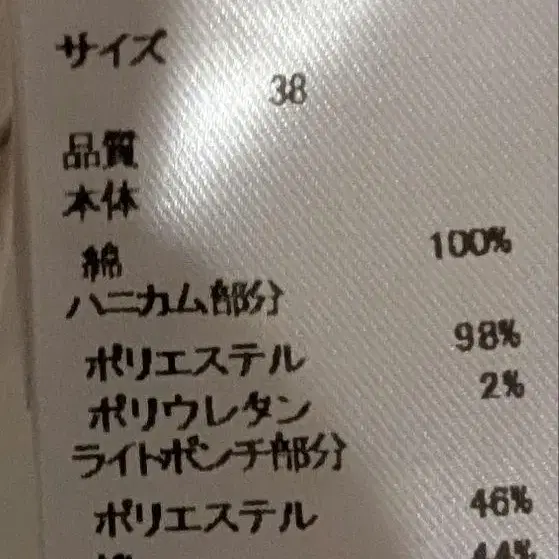 サイズ
38
品質
本体
綿 100%
ハニカム部分
ポリエステル 98%
ポリウレタン 2%
ライトポンチ部分
ポリエステル 46%
44%